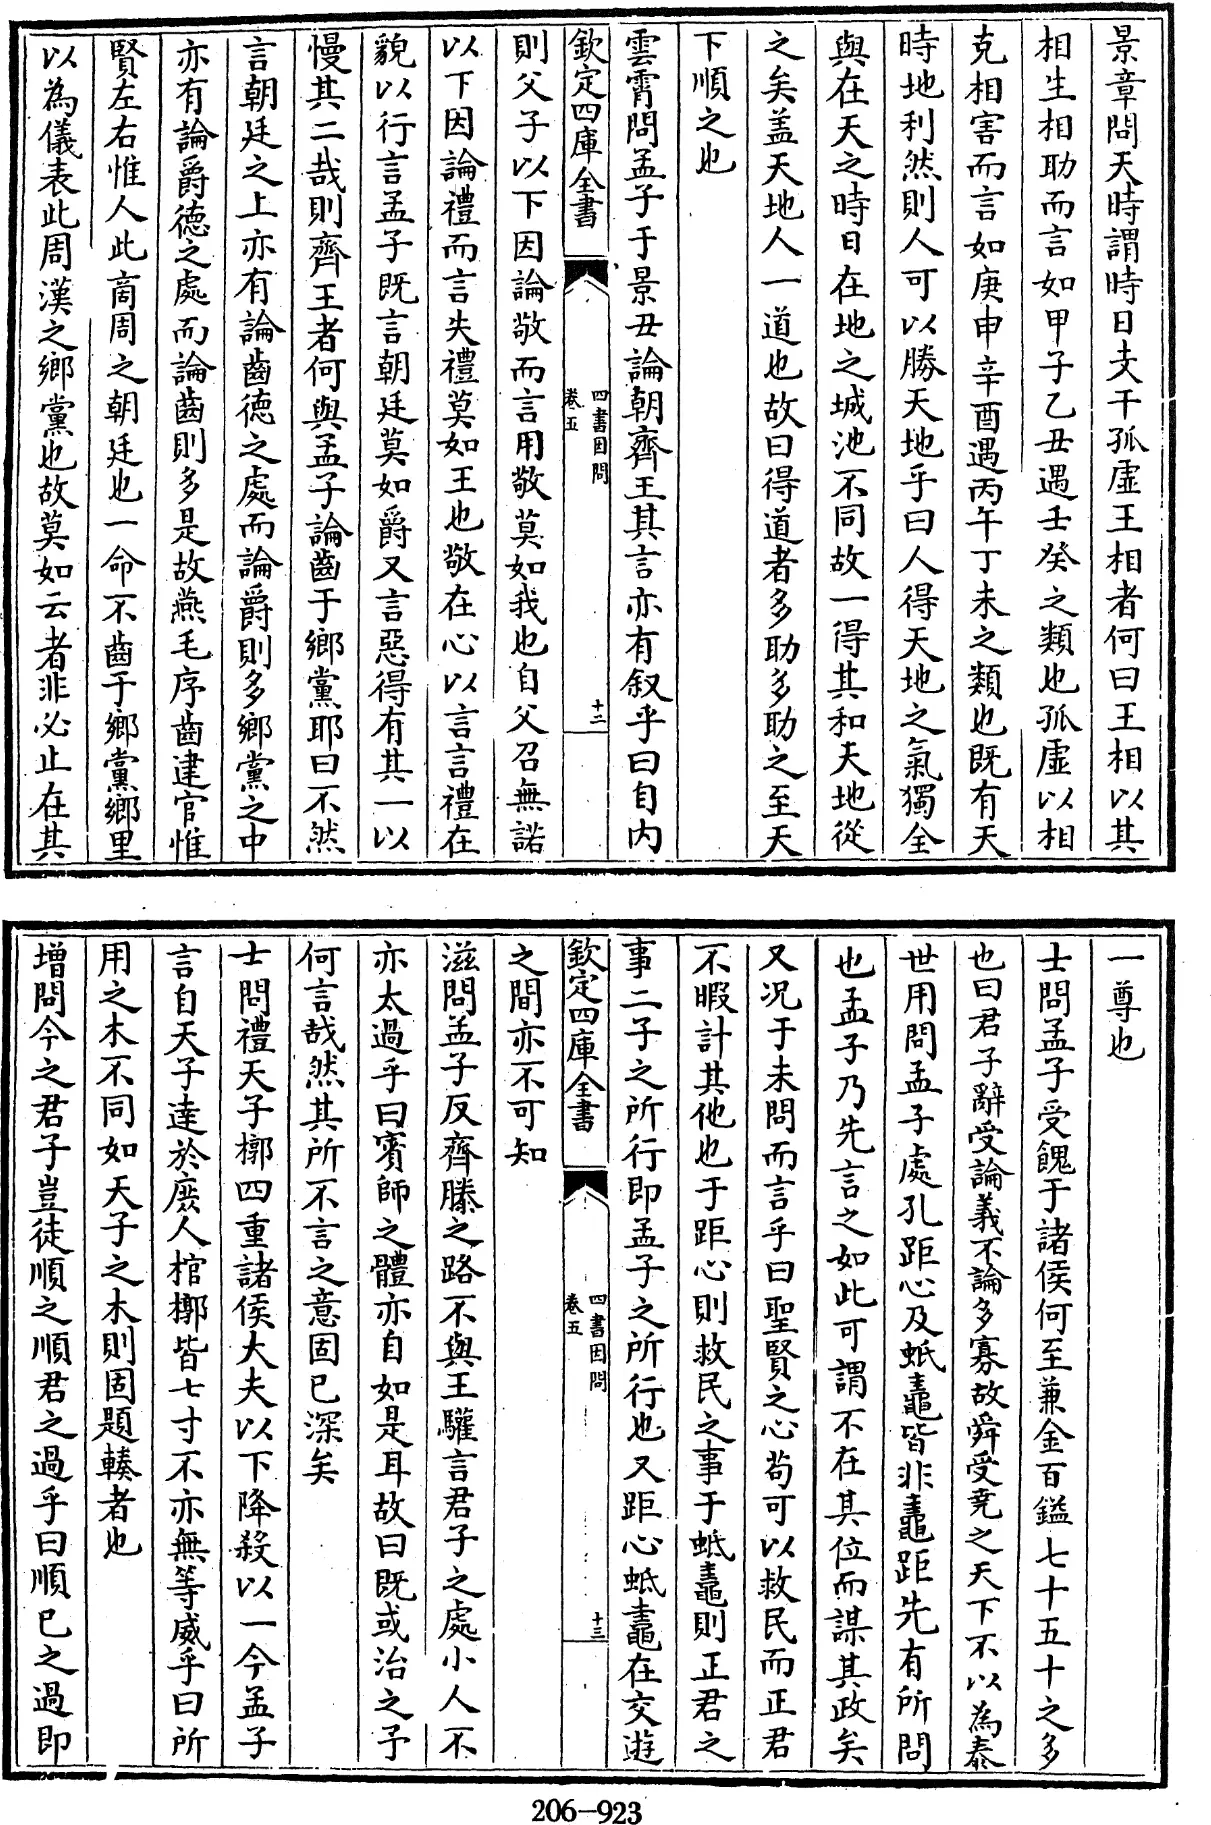 景章問天時謂時日支干孤虛王相者何曰王相以其
相生相助而言如甲子乙丑遇壬癸之類也孤虛以相
克相害而言如庚申辛酉遇丙午丁未之類也既有天
時地利然則人可以勝天地乎曰人得天地之氣獨全
與在天之時日在地之城池不同故一得其和天地從
之矣盖天地人一道也故曰得道者多助多助之至天
下順之也
雲霄問孟子于景丑論朝齊王其言亦有叙乎曰自内
欽定四庫全書
四書因問
卷五
十二
則父子以下因論敬而言用敬莫如我也自父召無諾
以下因論禮而言失禮莫如王也敬在心以言言禮在
貌以行言孟子既言朝廷莫如爵又言惡得有其一以
慢其二哉則齊王者何與孟子論齒于鄉黨耶曰不然
言朝廷之上亦有論齒德之處而論爵則多鄉黨之中
亦有論爵德之處而論齒則多是故燕毛序齒建官惟
賢左右惟人此商周之朝廷也一命不齒于鄉黨鄉里
以為儀表此周漢之鄉黨也故莫如云者非必止在其
一尊也
士問孟子受餽于諸侯何至兼金百鎰七十五十之多
也曰君子辭受論義不論多寡故舜受堯之天下不以為泰
世用問孟子處孔距心及蚳鼃皆非鼃距先有所問
也孟子乃先言之如此可謂不在其位而謀其政矣
又况于未問而言乎曰聖賢之心苟可以救民而正君
不暇計其他也于距心則救民之事于蚳鼃則正君之
事二子之所行即孟子之所行也又距心蚳鼃在交遊
欽定四庫全書
四書因問
卷五
十三
之間亦不可知
滋問孟子反齊滕之路不與王驩言君子之處小人不
亦太過乎曰賓師之體亦自如是耳故曰既或治之予
何言哉然其所不言之意固已深矣
士問禮天子槨四重諸侯大夫以下降殺以一今孟子
言自天子達於庶人棺槨皆七寸不亦無等威乎曰所
用之木不同如天子之木則固題輳者也
增問今之君子豈徒順之順君之過乎曰順已之過即
206-923